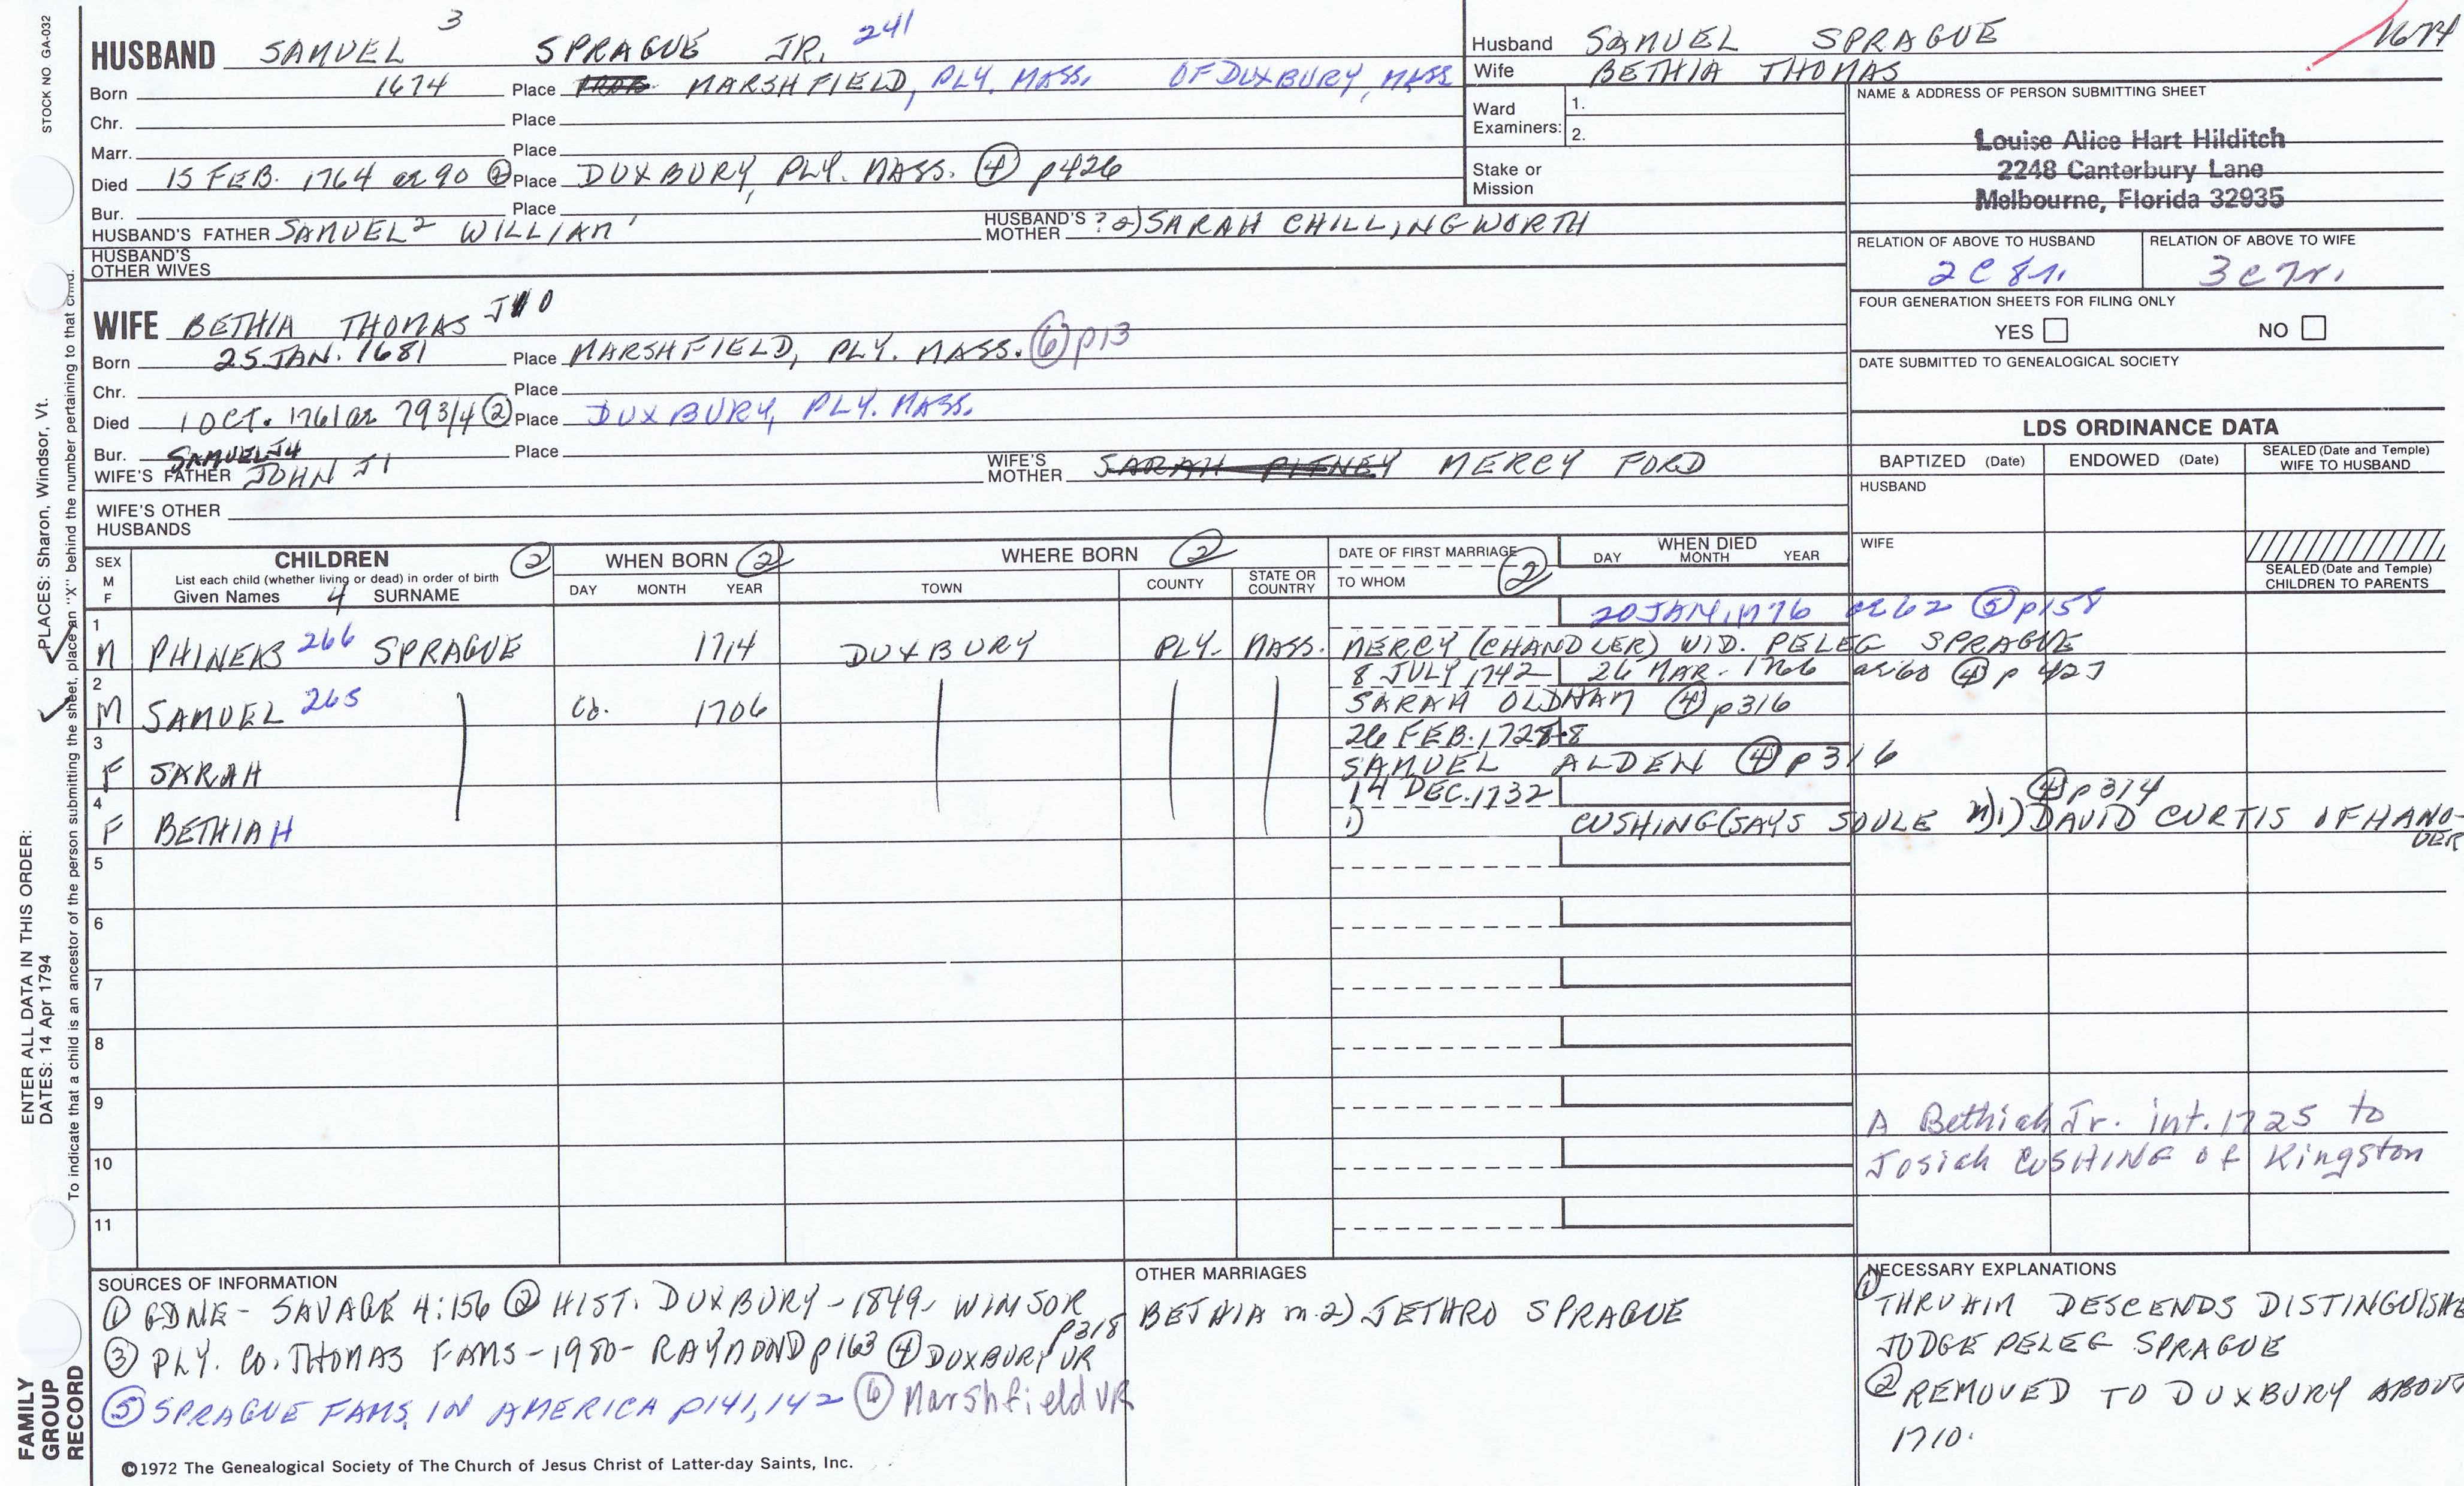 STOCK NO GA-032
HUSBAND SAMUEL 3 SPRAGUE JR. 241
Born 1674 Place PROB. MARSHFIELD, PLY. MASS. OF DUXBURY, MASS
Chr. Place
Marr. Place
Died 15 FEB. 1764 ae 90 ② Place DUXBURY, PLY. MASS. ④ p426
Bur. Place
HUSBAND'S FATHER SAMUEL 2 WILLIAM 1 HUSBAND'S MOTHER ? 2) SARAH CHILLINGWORTH
HUSBAND'S OTHER WIVES
Husband SAMUEL SPRAGUE 1674
Wife BETHIA THOMAS
Ward Examiners: 1.
2.
Stake or Mission
NAME & ADDRESS OF PERSON SUBMITTING SHEET
Louise Alice Hart Hilditch
2248 Canterbury Lane
Melbourne, Florida 32935
RELATION OF ABOVE TO HUSBAND RELATION OF ABOVE TO WIFE
2 C 8 r. 3 C 7 r.
FOUR GENERATION SHEETS FOR FILING ONLY
YES NO
DATE SUBMITTED TO GENEALOGICAL SOCIETY
WIFE BETHIA THOMAS
Born 25 JAN. 1681 Place MARSHFIELD, PLY. MASS. ⑥ p13
Chr. Place
Died 1 OCT. 1761 ae 79 3/4 ② Place DUXBURY, PLY. MASS.
Bur. Place
SAMUEL J4
WIFE'S FATHER JOHN J1 WIFE'S MOTHER SARAH PITNEY MERCY FORD
WIFE'S OTHER HUSBANDS
LDS ORDINANCE DATA
BAPTIZED (Date) ENDOWED (Date) SEALED (Date and Temple) WIFE TO HUSBAND
HUSBAND
WIFE
SEALED (Date and Temple) CHILDREN TO PARENTS
SEX M F CHILDREN ② WHEN BORN ② WHERE BORN ② DATE OF FIRST MARRIAGE ② WHEN DIED
List each child (whether living or dead) in order of birth
Given Names 4 SURNAME DAY MONTH YEAR TOWN COUNTY STATE OR COUNTRY TO WHOM DAY MONTH YEAR
1 20 JAN. 1776 ae 62 ⑤ p158
M PHINEAS 266 SPRAGUE 1714 DUXBURY PLY. MASS. MERCY (CHANDLER) WID. PELEG SPRAGUE
2 8 JULY 1742 26 MAR. 1766 ae 60 ④ p
M SAMUEL 265 1706 SARAH OLDHAM ④ p316
3 26 FEB. 1727-8
F SARAH SAMUEL ALDEN ④ p316
4 14 DEC. 1732 ④ p314
F BETHIAH 1) CUSHING (SAYS SOULE m) 1) DAVID CURTIS OF HANOVER
5
6
7
8
9
A Bethiah Jr. int. 1725 to
10
Josiah CUSHING of Kingston
11
SOURCES OF INFORMATION
① GDNE - SAVAGE 4:156 ② HIST. DUXBURY - 1849 - WINSOR p318
③ PLY. CO. THOMAS FAMS - 1980 - RAYMOND p163 ④ DUXBURY VR
⑤ SPRAGUE FAMS. IN AMERICA p141, 142 ⑥ Marshfield VR
OTHER MARRIAGES
BETHIA m. 2) JETHRO SPRAGUE
NECESSARY EXPLANATIONS
① THRU HIM DESCENDS DISTINGUISHE
JUDGE PELEG SPRAGUE
② REMOVED TO DUXBURY ABOUT
1710.
©1972 The Genealogical Society of The Church of Jesus Christ of Latter-day Saints, Inc.
FAMILY GROUP RECORD
ENTER ALL DATA IN THIS ORDER:
DATES: 14 Apr 1794 PLACES: Sharon, Windsor, Vt.
To indicate that a child is an ancestor of the person submitting the sheet, place an "X" behind the number pertaining to that child.